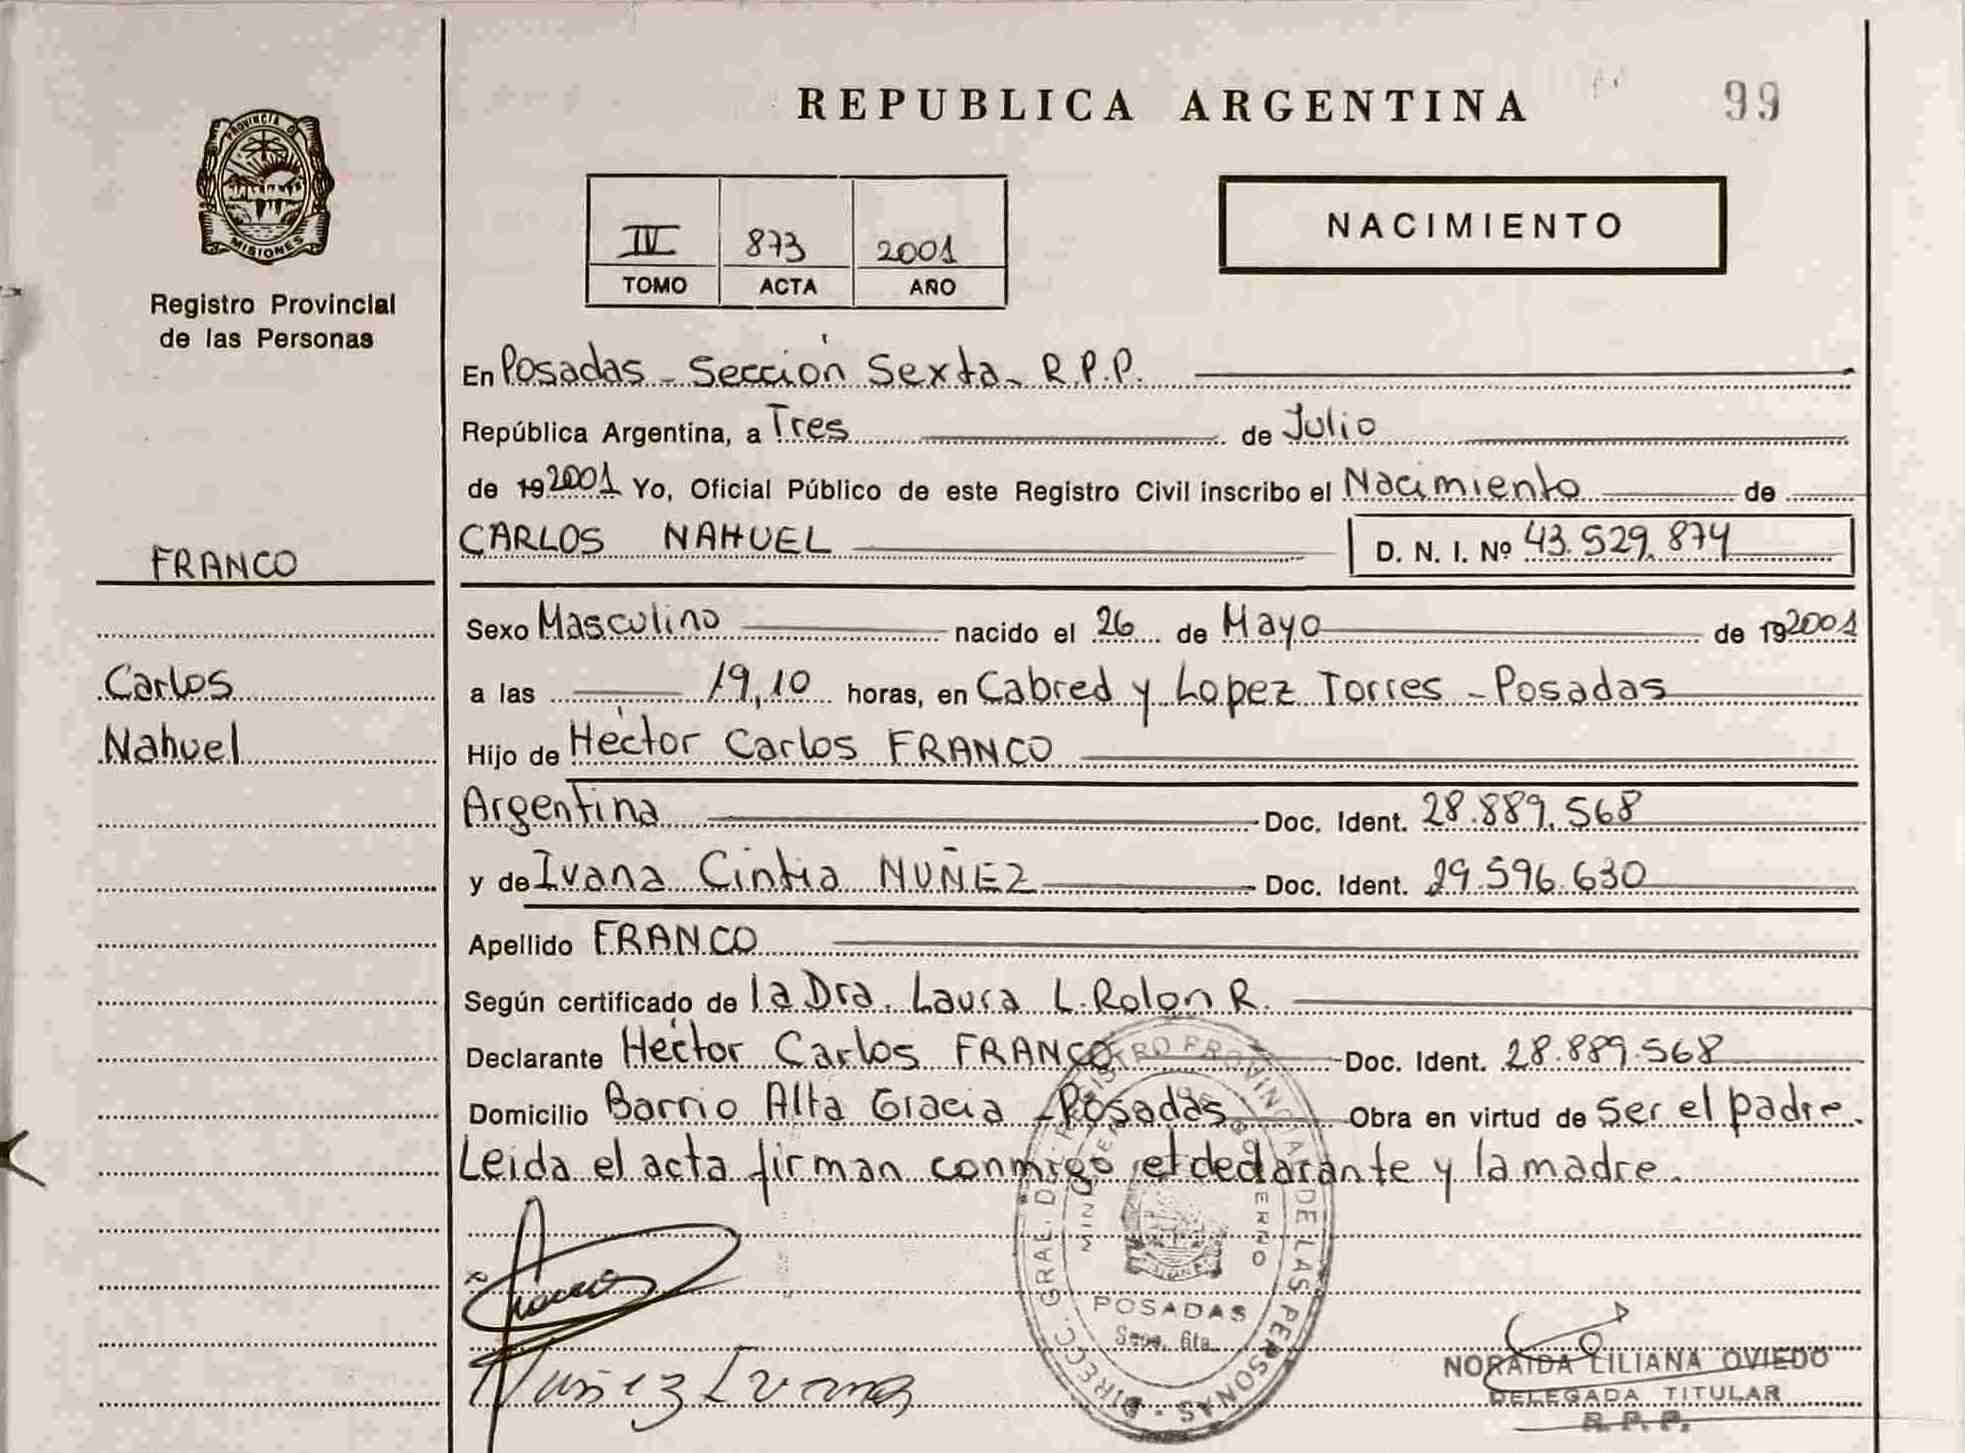 REPUBLICA ARGENTINA
99
PROVINCIA D
MISIONES
Registro Provincial
de las Personas
NACIMIENTO
IV 873 2001
TOMO ACTA AÑO
En Posadas - Sección Sexta - R.P.P.
República Argentina, a Tres de Julio
de 19 2001 Yo, Oficial Público de este Registro Civil inscribo el Nacimiento de
CARLOS NAHUEL D. N. I. Nº 43.529.874
FRANCO
Carlos
Nahuel
Sexo Masculino nacido el 26 de Mayo de 19 2001
a las 19,10 horas, en Cabred y Lopez Torres - Posadas
Hijo de Héctor Carlos FRANCO
Argentina Doc. Ident. 28.889.568
y de Ivana Cintia NUÑEZ Doc. Ident. 29.596.630
Apellido FRANCO
Según certificado de la Dra. Laura L. Rolon R.
Declarante Héctor Carlos FRANCO Doc. Ident. 28.889.568
Domicilio Barrio Alta Gracia - Posadas Obra en virtud de ser el padre.
Leida el acta firman conmigo el declarante y la madre.
DIRECC. GRAL. DEL REGISTRO PROVINCIAL DE LAS PERSONAS
POSADAS
Secc. 6ta.
Nuñez Ivana
NORAIDA LILIANA OVIEDO
DELEGADA TITULAR
R. P. P.